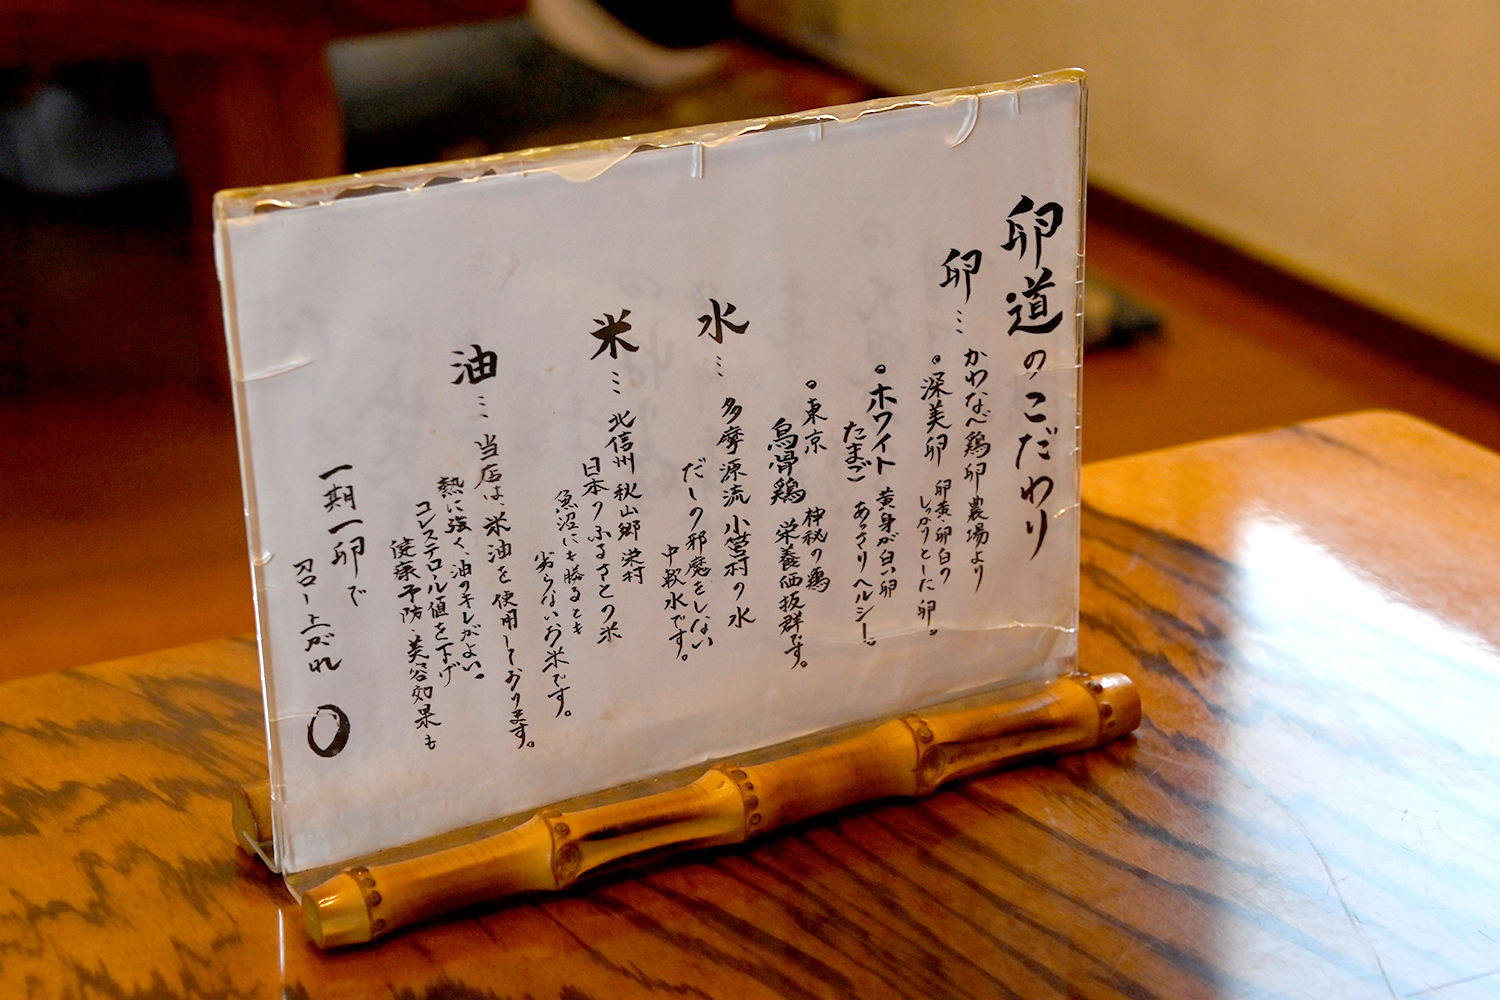 卵道のこだわり
卵…
かわなべ鶏卵農場より
。深美卵
卵黄・卵白の
しっかりとした卵。
。ホワイト
たまご
黄身が白い卵
あっさりヘルシー。
。東京
烏骨鶏
神秘の鶏
栄養価抜群です。
水…
多摩源流 小菅村の水
だしの邪魔をしない
中軟水です。
米…
北信州 秋山郷 栄村
日本のふるさとの米
魚沼にも勝るとも
劣らないお米です。
油…
当店は、米油を使用しております。
熱に強く、油のキレがよい。
コレステロール値を下げ
健康予防、美容効果も
一期一卵で
召し上がれ